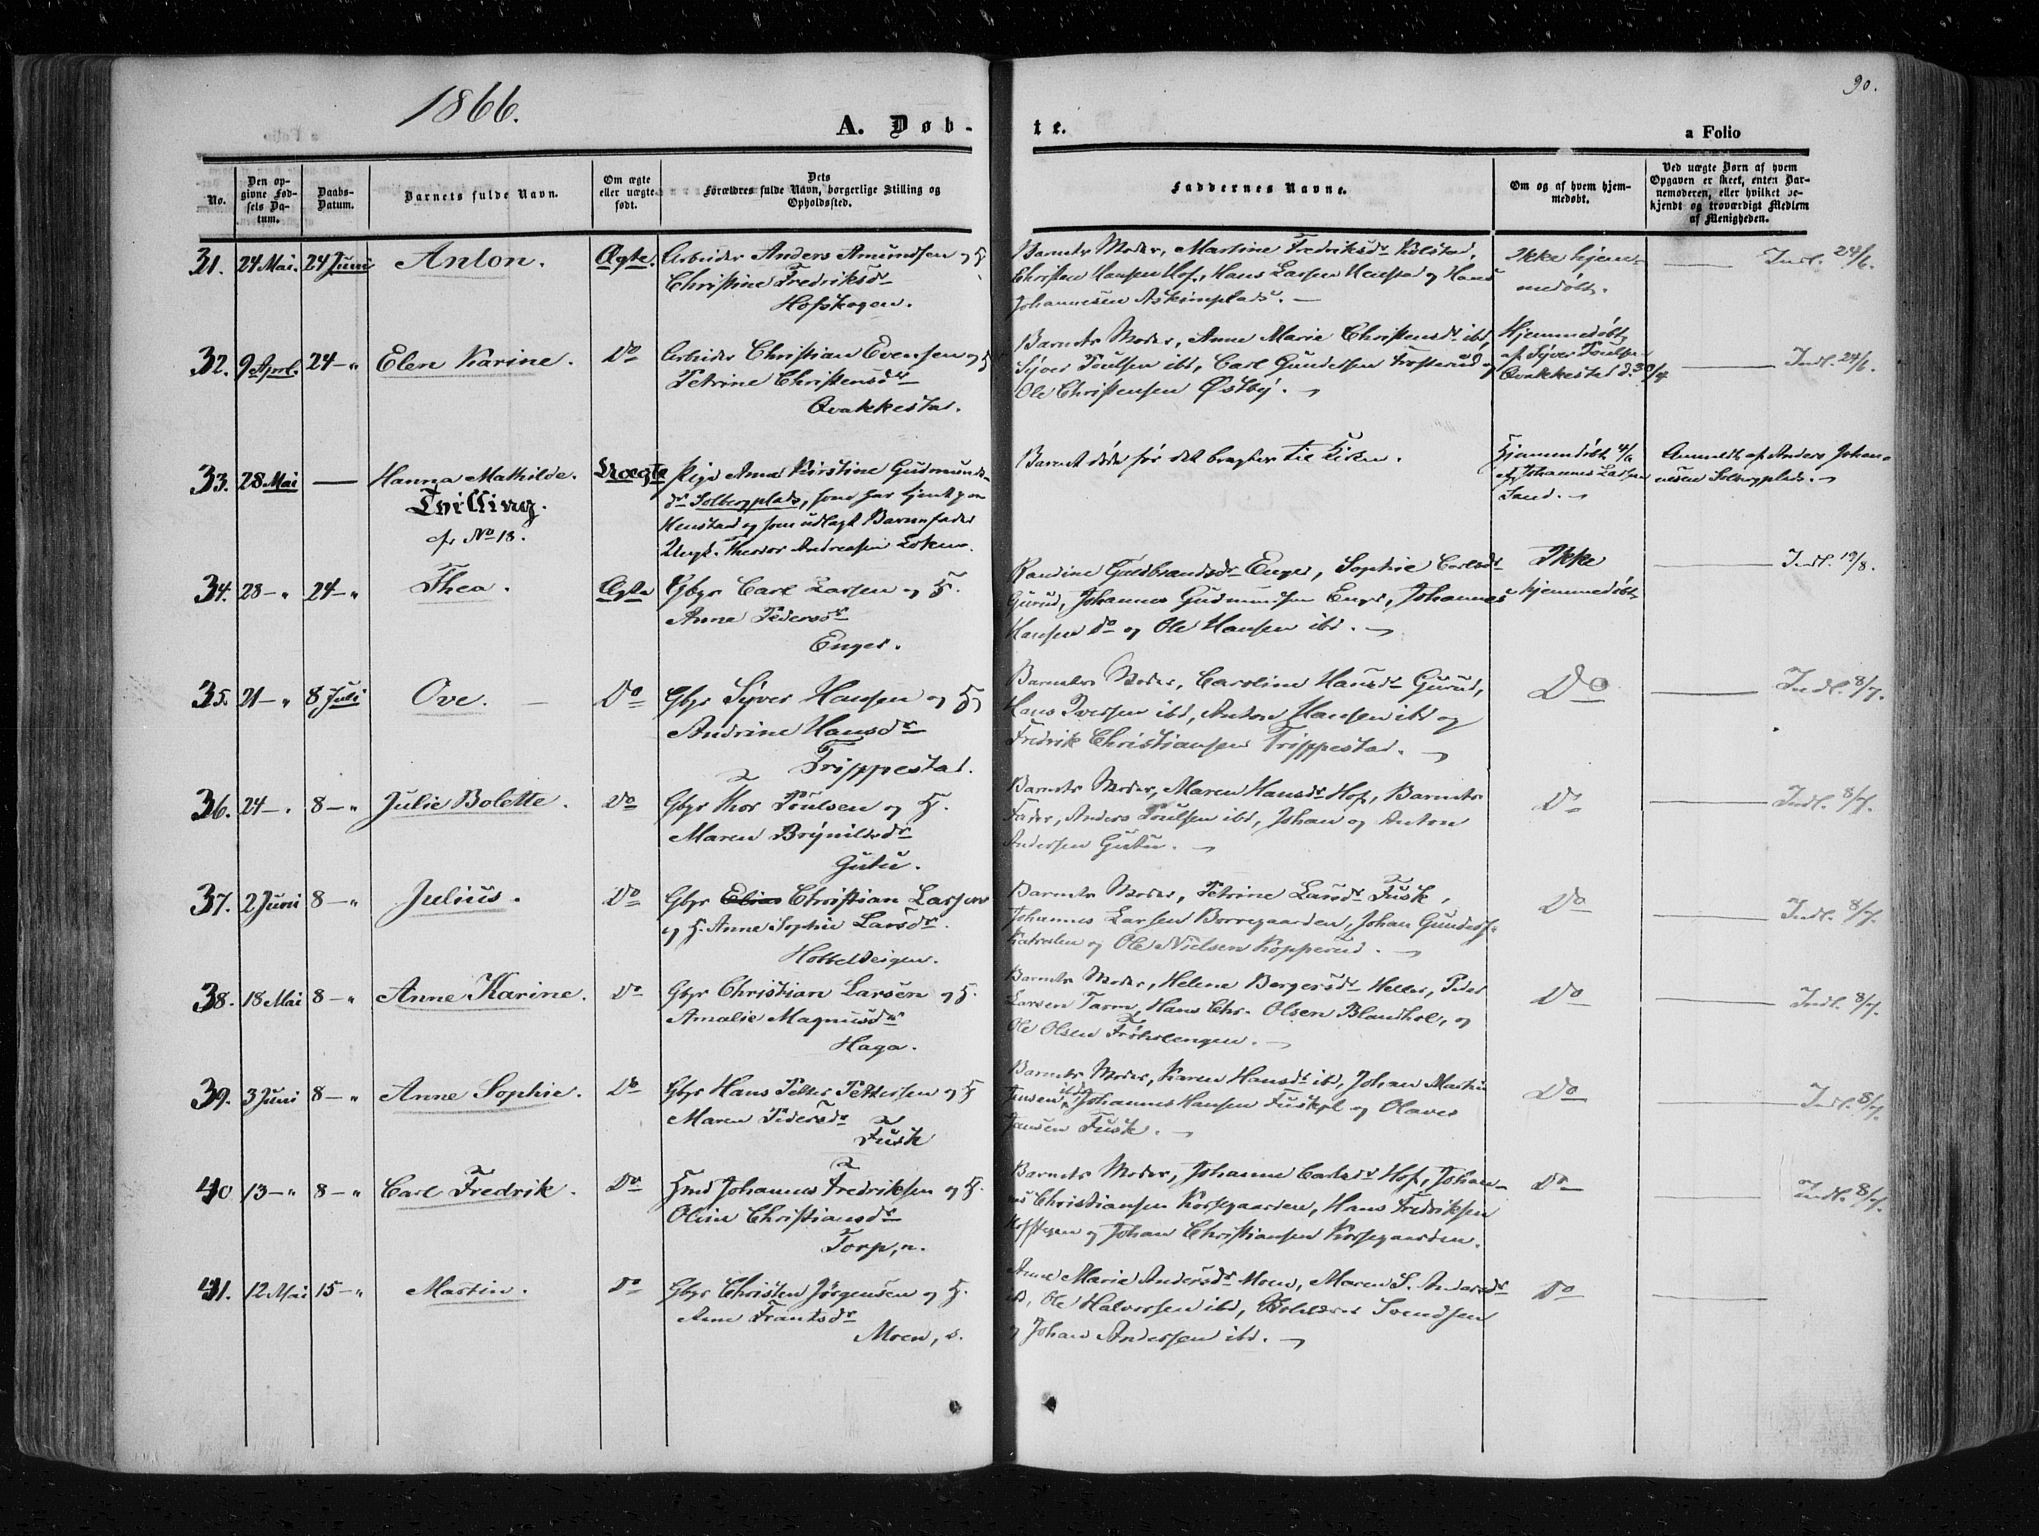 1866.
90.
A. Døb-
te.
a Folio
No.
Den op-
givne Fød-
sels Da-
tum.
Daabs-
Datum.
Barnets fulde Navn.
Om ægte
eller uægte
født.
Dets
Forældres fulde Navn, borgerlige Stilling og
Opholdssted.
Faddernes Navne.
Om og af hvem hjem-
medøbt.
Ved uægte Børn af hvem
Opgaven er skeet, enten Bar-
nemoderen, eller hvilket be-
kjendt og troværdigt Medlem
af Menigheden.
31. 24 Mai. 24 Juni Anton. Ægte. Arbeider Anders Amundsen og H
Christine Fredriksdr
Hofskogen.
Barnets Moder, Martine Fredriksdr Kolstad,
Christen Hansen Hof, Hans Larsen Henstad og Hans
Johannesen Askimplads.
Ikke hjem-
medøbt.
Indl. 24/6.
32. 9 April. 24 - " Elen Karine. Do Arbeider Christian Evensen og H
Petrine Christensdr
Qvakkestad.
Barnets Moder, Anne Marie Christensdr ibd,
Syver Poulsen ibd, Carl Gundersen Trosterud og
Ole Christensen Østby.
Hjemmedøbt
af Syver Poulsen
Qvakkestad d. 30/4
Indl. 24/6.
33. 28 Mai — Hanna Mathilde.
Tvilling.
cfr No 18.
Uægte
Pige Anna Kirstine Gudmunds-
dr Solbergplads, som har tjent paa
Henstad og som udlagt Barnefader
Ungk. Theodor Andreasen Løken.
Barnet døde før det bragtes til Kirken.
Hjemmedøbt 4/6
af Johannes Larsen
Sand.
Anmeldt af Anders Johan-
nesen Solbergplads.
34. 28 - " 24 - " Thea. Ægte Gbgr Carl Larsen og H.
Anne Pedersdr
Enger.
Randine Guldbrandsdr Enger, Sophie Carlsdr
Gurud, Johannes Gudmundsen Enger, Johannes
Hansen Do og Ole Hansen ibd.
Ikke
hjemmedøbt
Indl. 19/8.
35. 21 - " 8 Juli Ove. Do Gbgr Syver Hansen og H
Andrine Hansdr
Trippestad.
Barnets Moder, Caroline Hansdr Gurud,
Hans Iversen ibd, Anton Hansen ibd og
Fredrik Christiansen Trippestad.
Do
Indl. 8/7.
36. 24 - " 8 - " Julie Bolette. Do Gbgr Thor Poulsen og H.
Maren Brynildsdr
Gutu.
Barnets Moder, Maren Hansdr Hof, Barnets
Fader, Anders Poulsen ibd, Johan og Anton
Andersen Gutu.
Do
Indl. 8/7.
37. 2 Juni 8 - " Julius. Do Gbgr Elias Christian Larsen
og H. Anne Sophie Larsdr.
Hottelveigen.
Barnets Moder, Petrine Larsdr Fusk,
Johannes Larsen Borregaarden, Johan Gunders.
Katralen og Ole Nielsen Kopperud.
Do
Indl. 8/7.
38. 18 Mai 8 - " Anne Karine. Do Gbgr Christian Larsen og H.
Amalie Magnusdr
Haga.
Barnets Moder, Helene Bergersdr Heller, Peder
Larsen Tarm, Hans Chr. Olsen Blandhol, og
Ole Olsen Frøholengen.
Do
Indl. 8/7.
39. 3 Juni 8 - " Anne Sophie. Do Gbgr Hans Petter Pettersen og H
Maren Pedersdr
Fusk
Barnets Moder, Karen Hansdr ibd, Johan Martin
Jensen ibd, Johannes Hansen Fuskpl og Olaves
Jansen Fusk.
Do
Indl. 8/7.
40 13 - " 8 - " Carl Fredrik. Do Hmd Johannes Fredriksen og H.
Oline Christiansdr
Torp, n.
Barnets Moder, Johanne Carlsdr Hof, Johan-
nes Christiansen Korsegaarden, Hans Fredriksen
Hofskogen og Johan Christiansen Korsegaarden.
Do
Indl. 8/7.
41. 12 Mai 15 - " Martin. Do Gbgr Christen Jørgensen og H.
Anne Frantsdr
Moen, s.
Anne Marie Andersdr Moen, Maren S. Andersdr
ib, Ole Halvorsen ibd, Svendsen
og Johan Andersen ibd.
Do